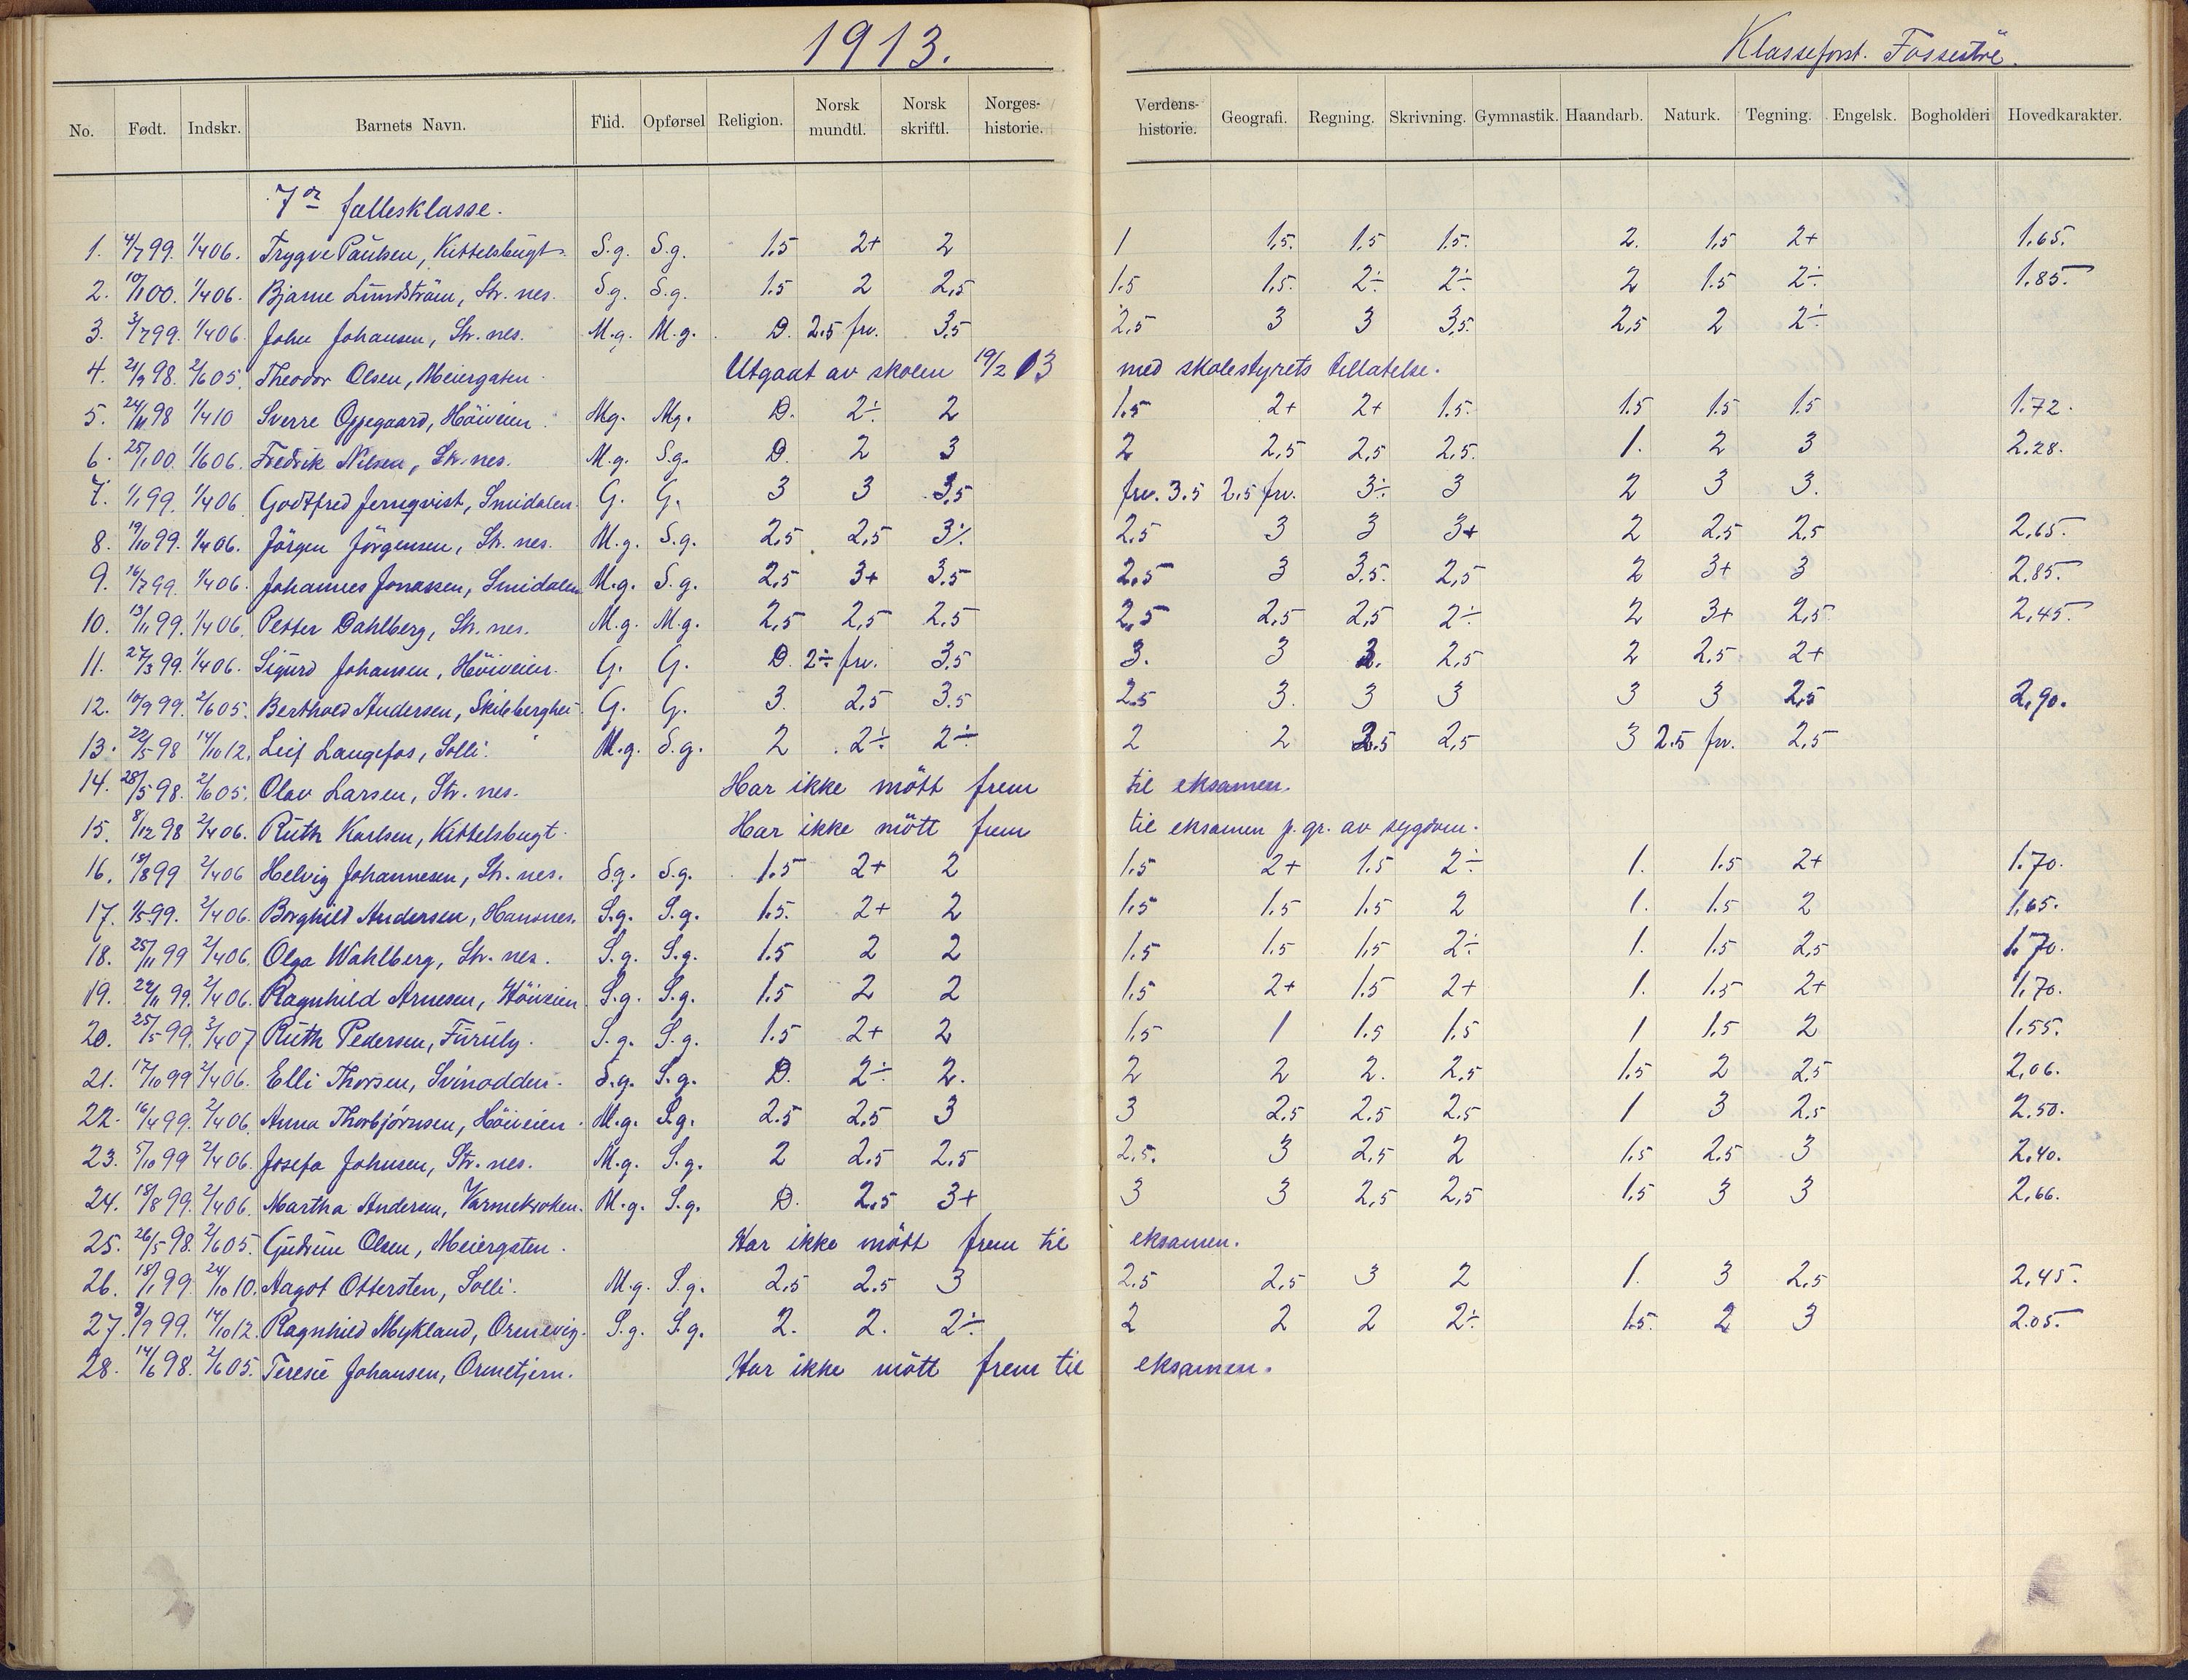 1913.
Klasseforst. Fossestöl.
No. Født. Indskr. Barnets Navn. Flid. Opførsel Religion. Norsk mundtl. Norsk skriftl. Norges-historie. Verdens-historie. Geografi. Regning. Skrivning. Gymnastik. Haandarb. Naturk. Tegning. Engelsk. Bogholderi Hovedkarakter.
7de fællesklasse.
1. 4/7 99. 1/4 06. Trygve Paulsen, Kittelsbugt. S.g. S.g. 1.5 2+ 2 1 1.5. 1.5 1.5. 2. 1.5 2+ 1.65.
2. 10/1 00. 1/4 06. Bjarne Lundström, Str. nes. S.g. S.g. 1.5 2 2,5 1.5 1.5. 2÷ 2÷ 2 1.5 2÷ 1.85.
3. 3/7 99. 1/4 06. John Johansen, Str. nes. M.g. M.g. D. 2.5 frv. 3.5 2.5 3 3 3,5. 2,5 2 2÷
4. 21/9 98. 2/6 05. Theodor Olsen, Meiergaten. Utgaat av skolen 19/2 13 med skolestyrets tillatelse.
5. 24/11 98 1/4 10 Sverre Oppegaard, Höiveien. Mg. Mg. D. 2÷ 2 1.5 2+ 2+ 1.5. 1.5 1.5 1.5 1.72.
6. 25/1 00. 1/6 06. Fredrik Nilsen, Str. nes. M.g. S.g. D. 2 3 2 2,5 2,5 2,5. 1. 2 3 2.28.
7. 1/1 99. 1/4 06. Godtfred Jernqvist, Smidalen. G. G. 3 3 3,5 frv. 3.5 2.5 frv. 3÷ 3 2 3 3.
8. 19/10 99. 1/4 06. Jörgen Jörgensen, Str. nes. M.g. S.g. 2,5 2,5 3÷ 2,5 3 3 3+ 2 2.5 2,5 2,65.
9. 16/7 99. 1/4 06. Johannes Jonassen, Smidalen M.g. S.g. 2,5 3+ 3.5 2.5 3 3.5. 2,5 2 3+ 3 2.85.
10. 13/11 99. 1/4 06. Petter Dahlberg, Str. nes. M.g. M.g. 2,5 2,5 2.5 2,5 2,5 2,5 2÷ 2 3+ 2,5 2,45
11. 27/3 99. 1/4 06. Sigurd Johansen, Höiveien. G. G. D. 2÷ frv. 3,5 3. 3 3. 2,5 2 2,5 2+
12. 10/9 99. 2/6 05. Berthold Andersen, Skilsberghei. G. G. 3. 2,5 3.5 2.5 3. 3 3 3 3 2,5 2,90.
13. 22/5 98 14/10 12. Leif Langefos, Solli. M.g. S.g. 2 2÷ 2÷ 2 2 2.5 2,5 3 2.5 frv. 2,5
14. 28/5 98. 2/6 05. Olav Larsen, Str. nes. Har ikke mött frem til eksamen.
15. 8/12 98 2/4 06. Ruth Karlsen, Kittelsbugt. Har ikke mött frem til eksamen p. gr. av sygdom.
16. 18/8 99 2/4 06 Helvig Johannesen, Str. nes. S.g. S.g. 1.5 2+ 2 1.5 2+ 1.5 2÷ 1. 1.5 2+ 1.70.
17. 1/5 99. 2/4 06. Borghild Andersen, Hansnes. S.g. S.g. 1.5. 2+ 2 1.5 1.5 1.5 2 1. 1.5 2 1,65.
18. 25/11 99 2/4 06. Olga Wahlberg, Str. nes. S.g. S.g. 1.5 2 2 1.5 1.5 1.5 2÷ 1. 1.5 2,5 1.70.
19. 22/11 99. 2/4 06. Ragnhild Arnesen, Höiveien S.g. S.g. 1.5 2 2 1.5 2+ 1.5 2+ 1. 1.5 2+ 1.70.
20. 25/5 99. 3/4 07 Ruth Pedersen, Furuly. S.g. S.g. 1.5 2+ 2 1.5 1 1.5 1.5 1 1.5 2 1.55.
21. 17/10 99 2/4 06. Elli Thorsen, Svinodden. S.g. S.g. D. 2÷ 2. 2 2 2. 2.5 1.5 2 2.5 2,06.
22. 16/4 99. 2/4 06. Anna Thorbjörnsen, Höiveien. M.g. S.g. 2.5 2.5 3 3 2.5 2.5 2.5 1 3 2.5 2.50.
23. 5/10 99 2/4 06. Josefa Johnsen, Str. nes. M.g. S.g. 2 2.5 2.5 2.5. 3 2.5 2 1.5 2.5 3 2.40.
24. 18/8 99. 2/4 06. Martha Andersen, Varmekroken. M.g. S.g. D. 2.5 3+ 3 3 2,5 2,5 1.5 3 3 2,66.
25. 26/5 98. 2/6 05. Gudrun Olsen, Meiergaten. Har ikke mött frem til eksamen.
26. 18/1 99. 24/10 10. Aagot Ottersten, Solli. M.g. S.g. 2.5 2.5 3 2.5 2,5 3 2 1. 3 2,5 2,45.
27. 8/9 99. 14/10 12. Ragnhild Mykland, Ormevig. S.g. S.g. 2. 2. 2÷ 2 2 2 2÷ 1.5. 2 3 2.05.
28. 14/6 98. 2/6 05. Teresie Johansen, Ormetjern. Har ikke mött frem til eksamen.